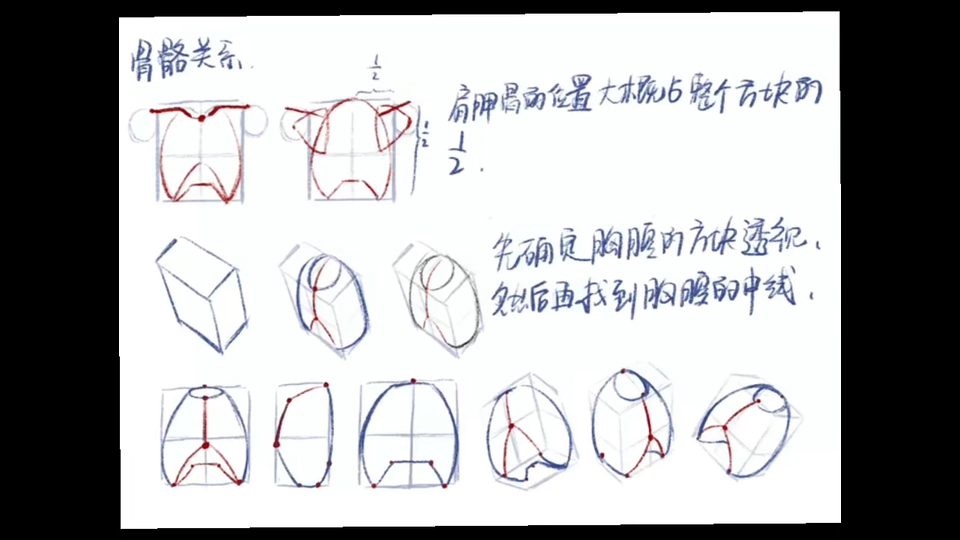 骨骼关系.
1/2
1/2
肩胛骨的位置大概占整个方块的
1/2.
先确定胸腔的方块透视,
然后再找到胸腔的中线.